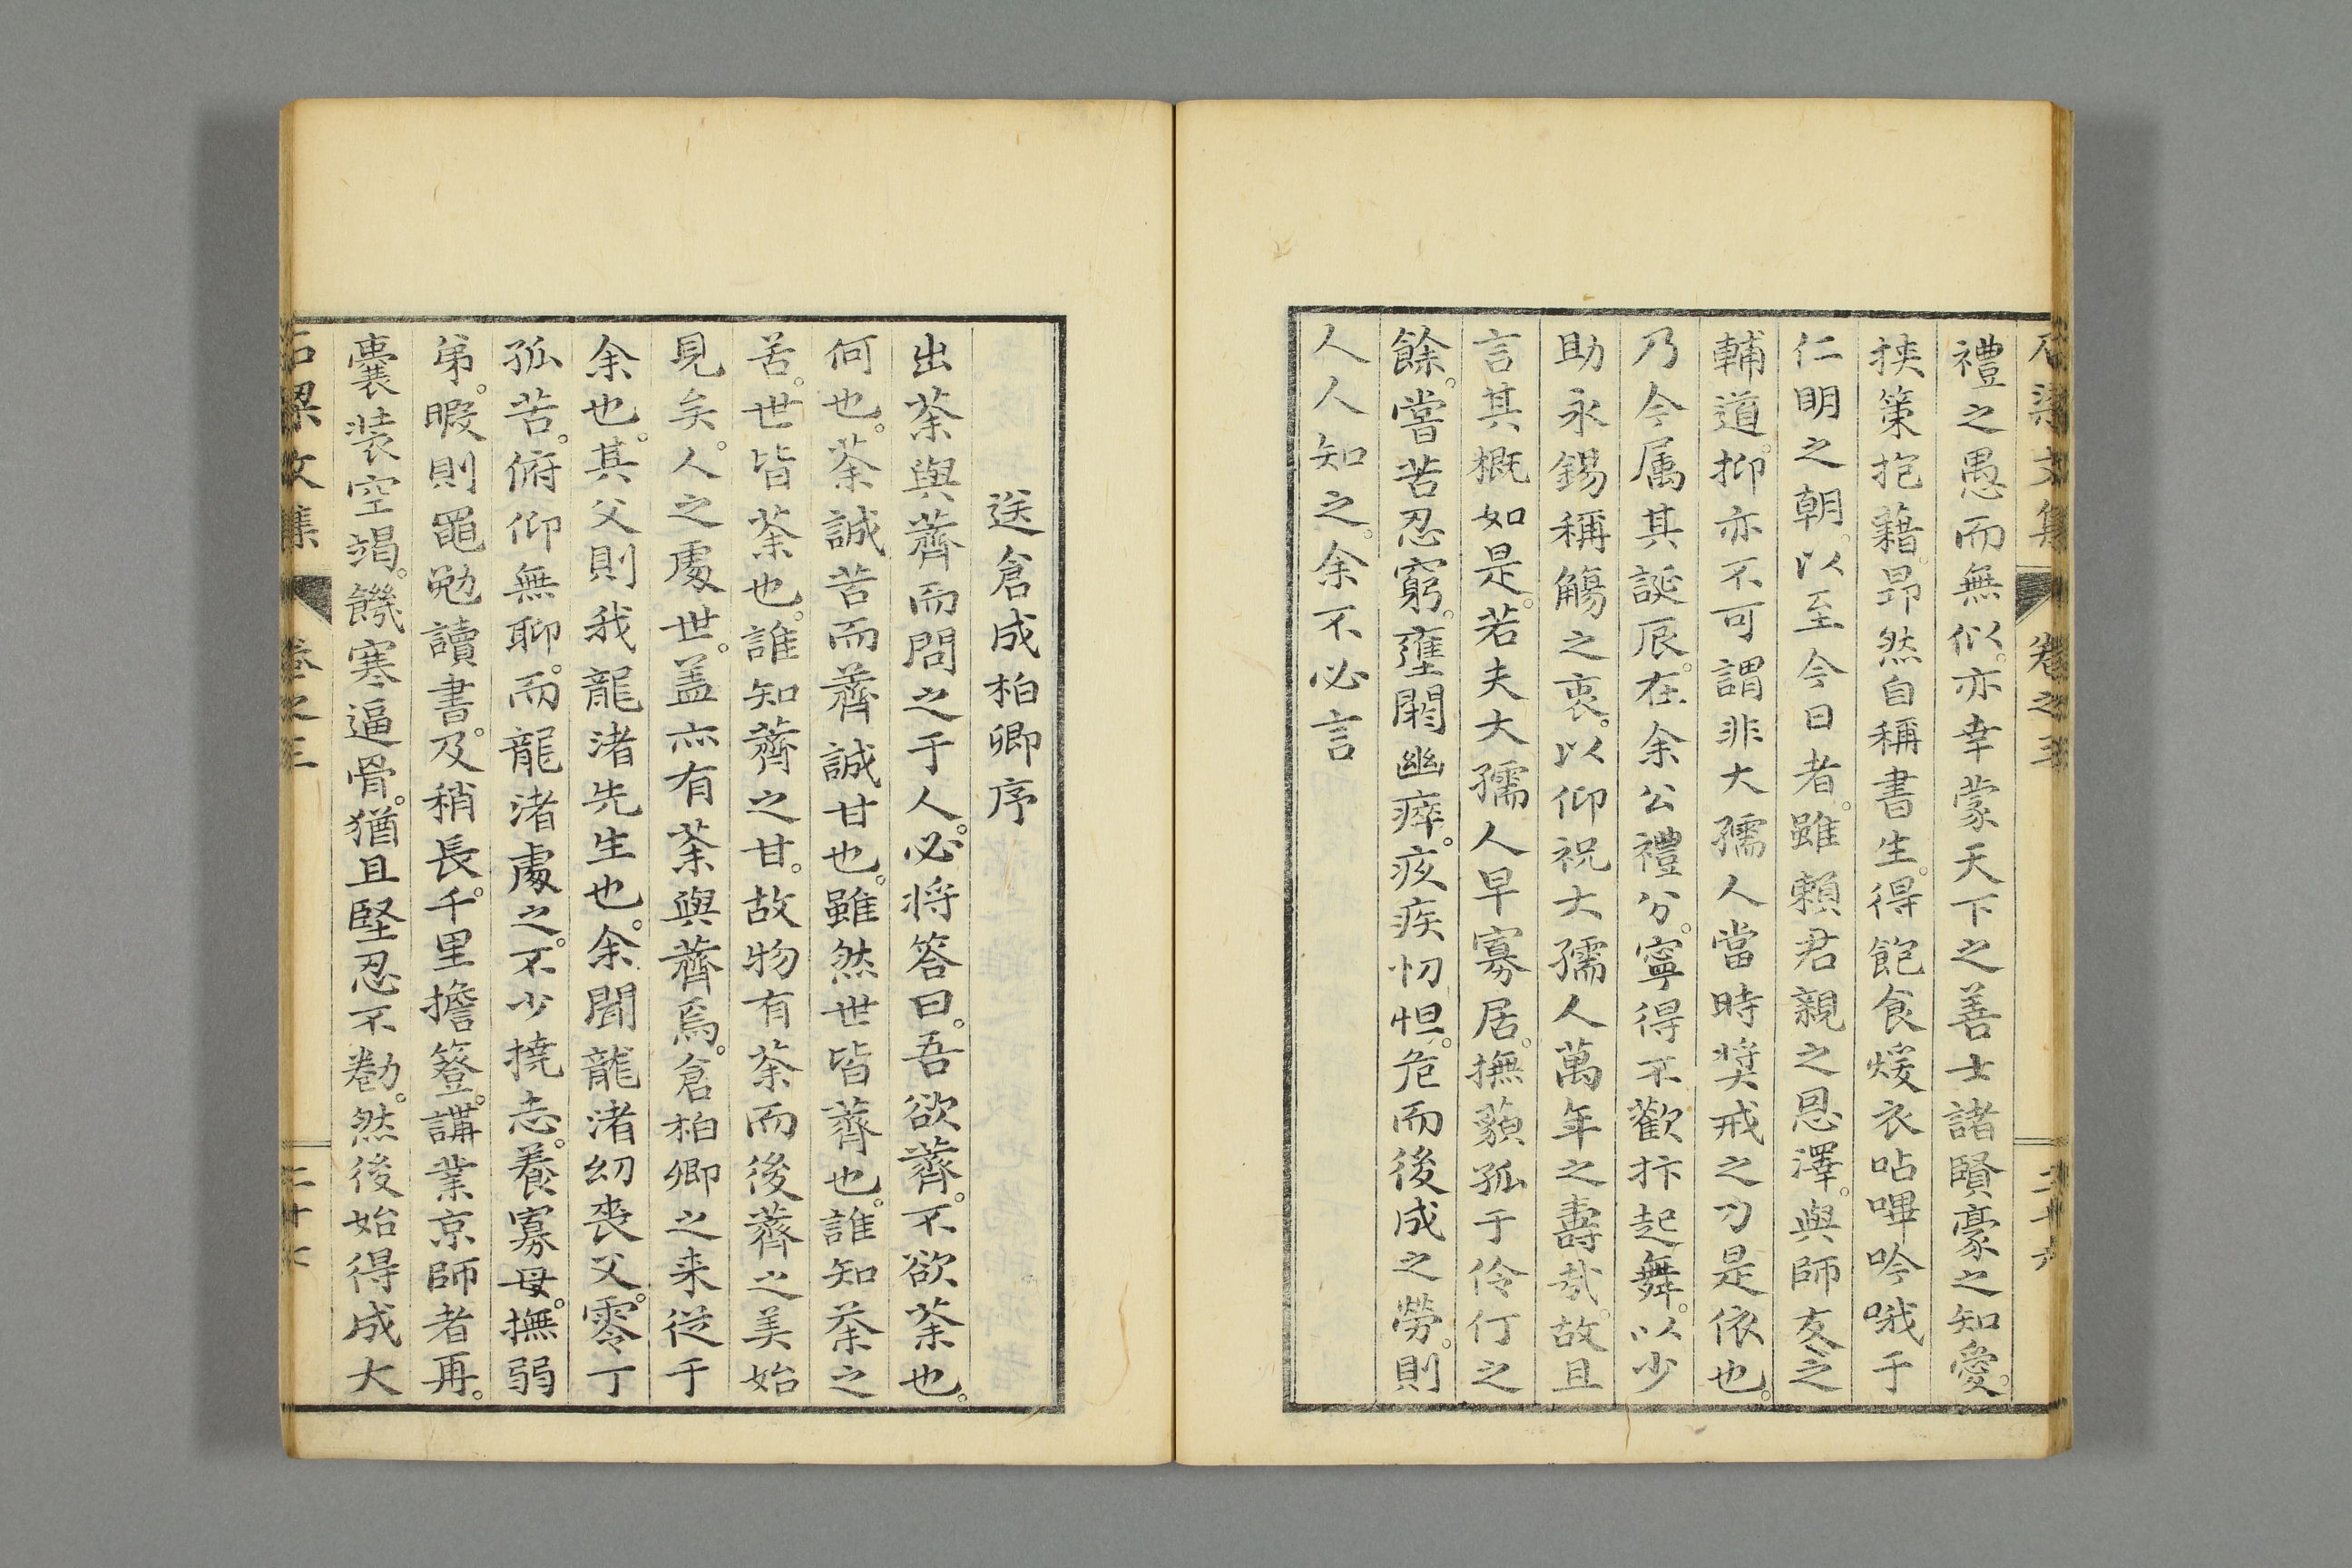 禮之愚而無似。亦幸蒙天下之善士諸賢豪之知愛。
挾策抱藉。昻然自稱書生。得飽食煖衣呫嗶吟哦于
仁明之朝。以至今日者。雖賴君親之恩澤。與師友之
輔道。抑亦不可謂非大孺人當時奨戒之力是依也。
乃今属其誕辰。在余公禮分。寧得不歡抃起舞。以少
助永錫稱觴之衷。以仰祝大孺人萬年之壽哉。故且
言其概如是。若夫大孺人早寡居。撫藐孤于伶仃之
餘。嘗苦忍窮。壅閼幽瘁。疢疾忉怛。危而後成之勞。則
人人知之。余不必言
送倉成柏卿序
出荼與薺而問之于人。必将答曰。吾欲薺。不欲荼也。
何也。荼誠苦而薺誠甘也。雖然世皆薺也。誰知荼之
苦。世皆荼也。誰知薺之甘。故物有荼而後薺之美始
見矣。人之處世。盖亦有荼與薺焉。倉柏卿之来従于
余也。其父則我龍渚先生也。余聞龍渚幼喪父。零丁
孤苦。俯仰無聊。而龍渚處之。不少撓志。養寡母。撫弱
弟。暇則黽勉讀書。及稍長。千里擔簦。講業京師者再。
嚢装空竭。饑寒逼骨。猶且堅忍不勌。然後始得成大
石梁文集
卷之三